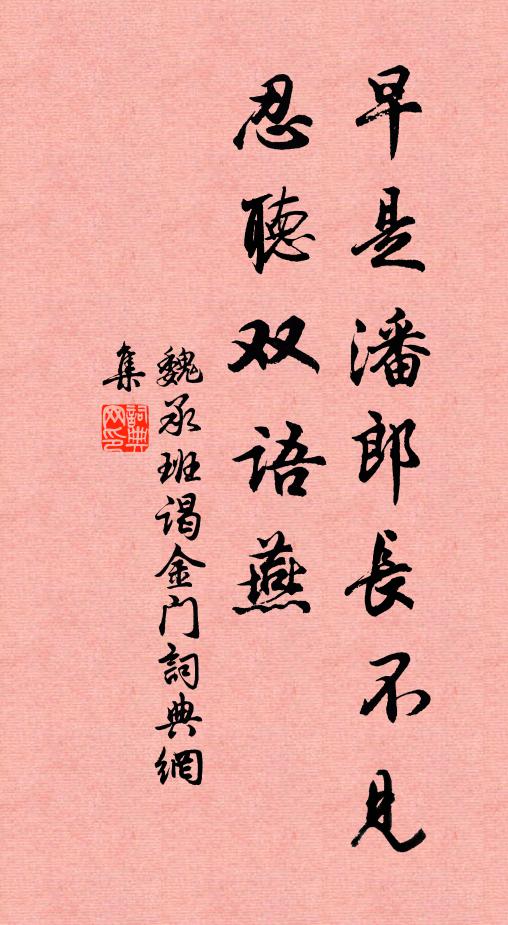 早是潘郎長不見
忍聴双语燕
魏承班谒金门詞典網
集
詞典
网印